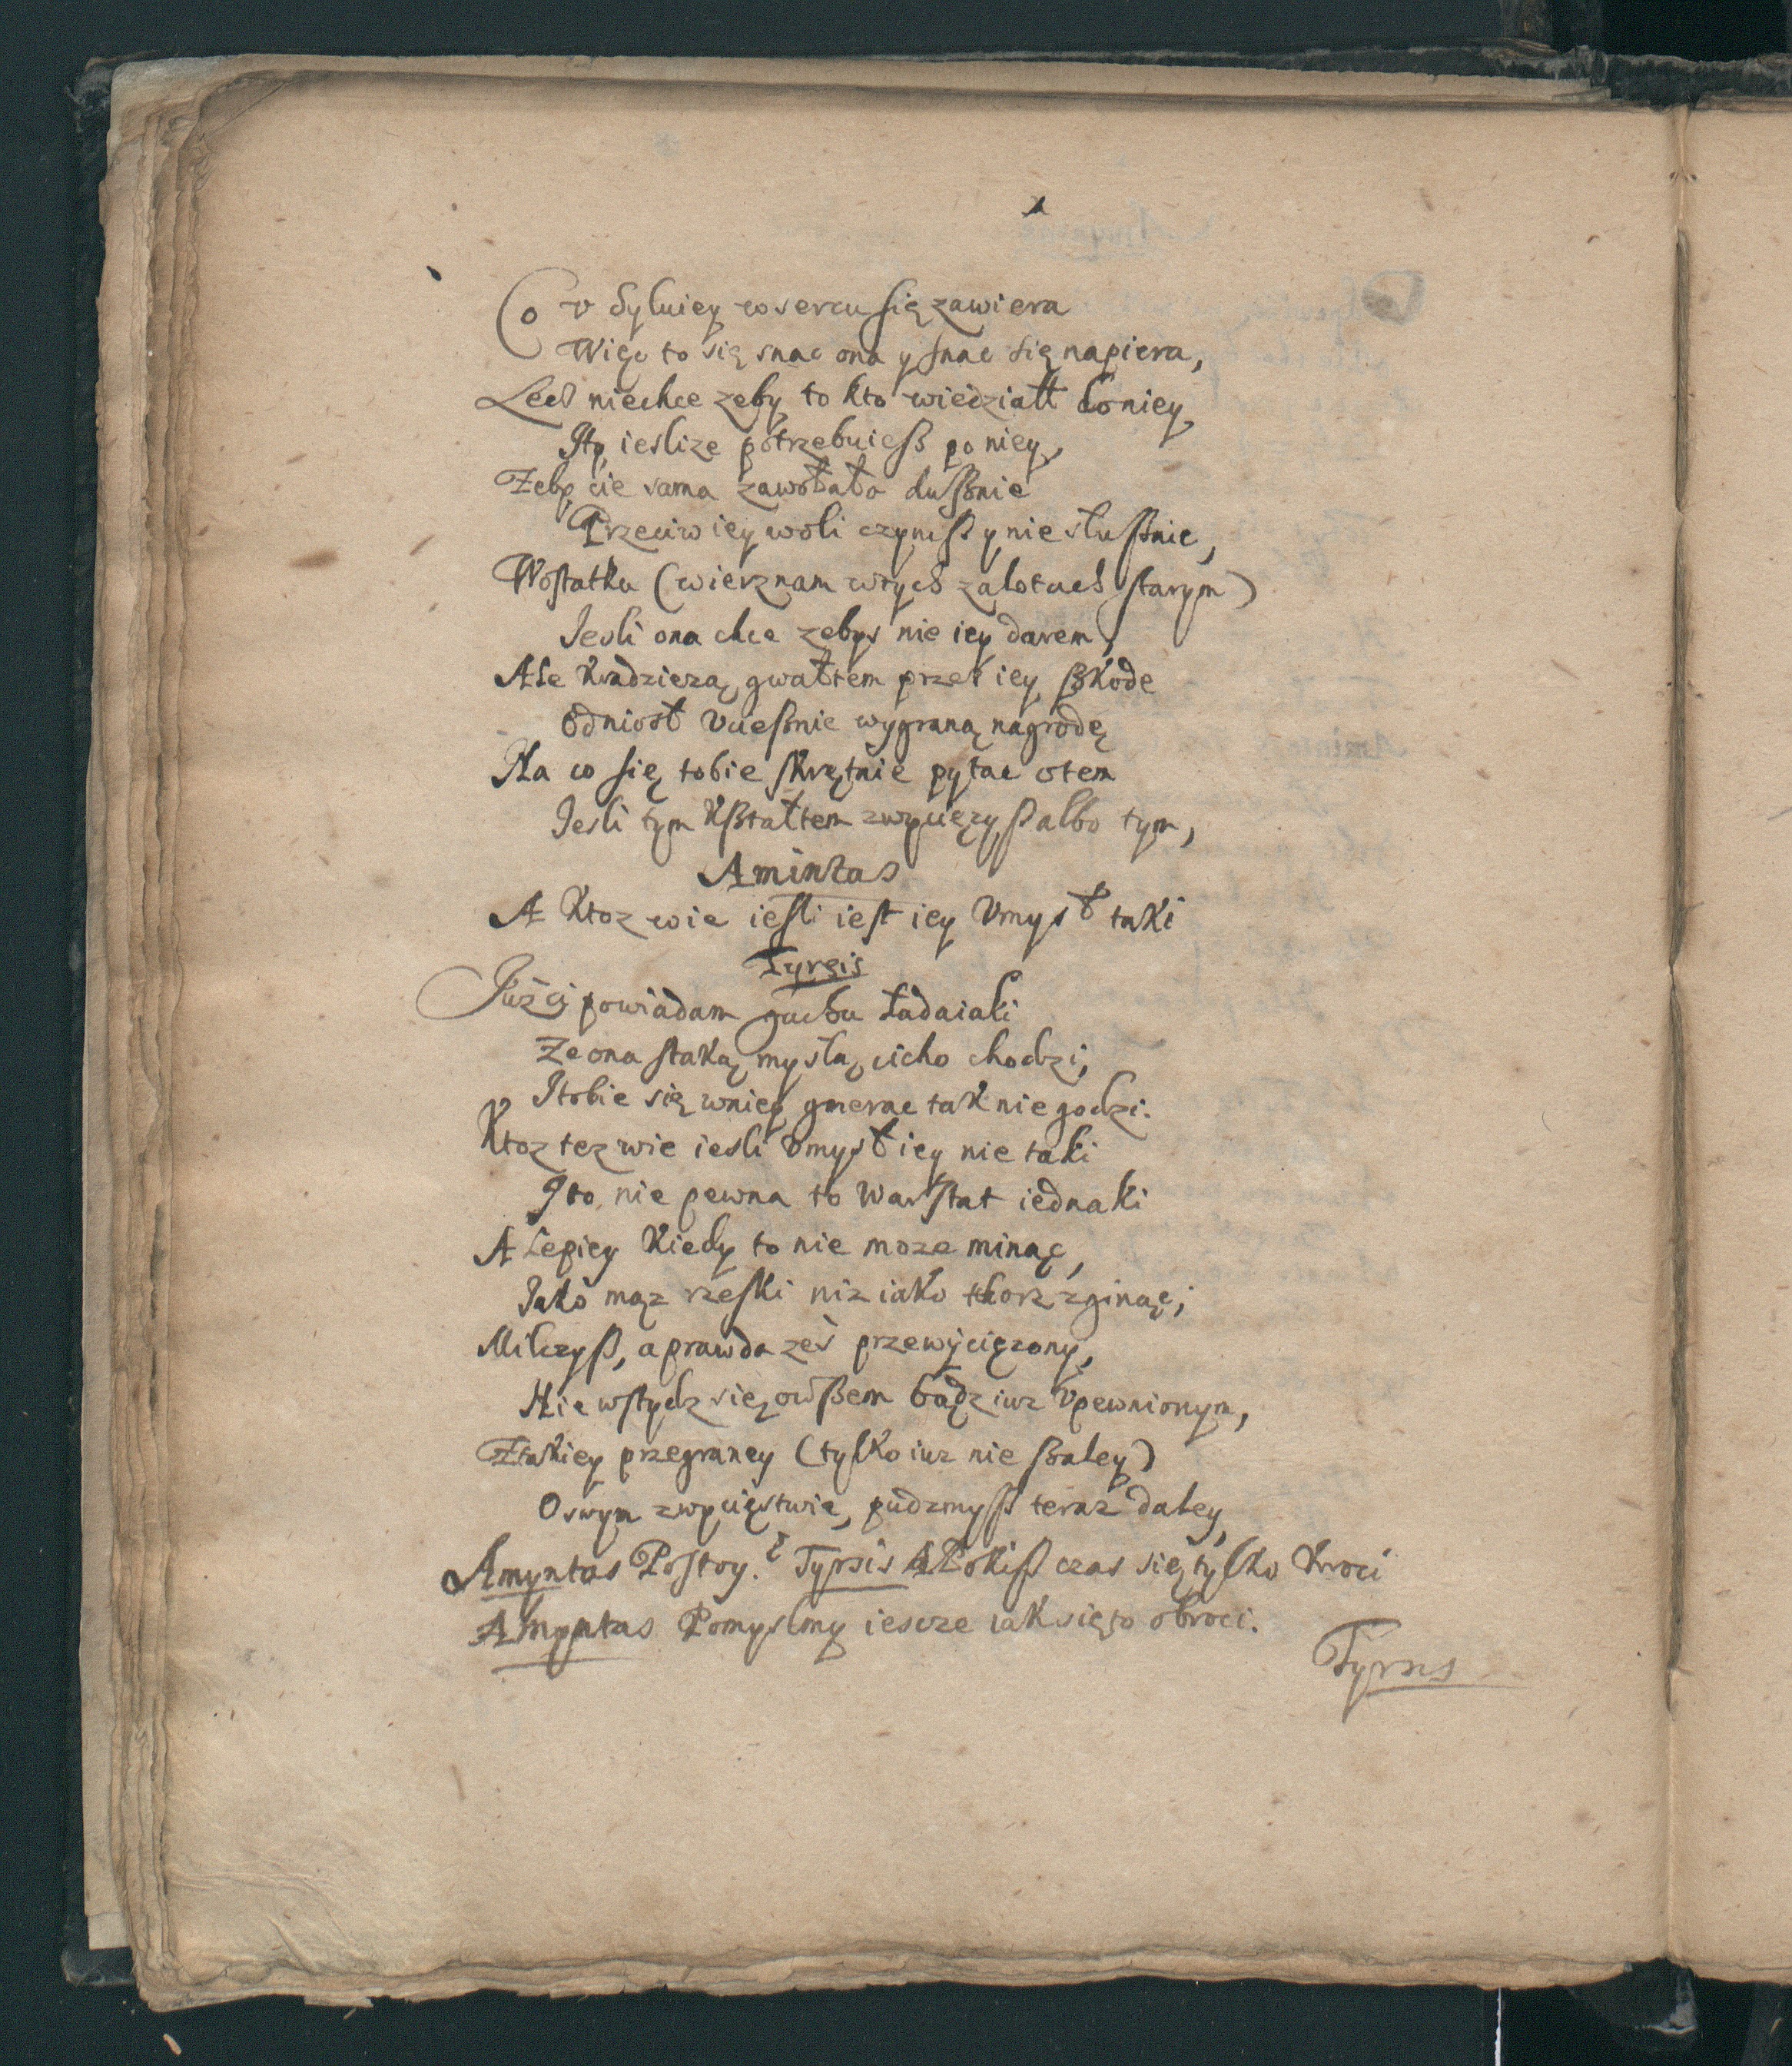 Co v Sylwiey w sercu się zawiera
Więc to się snac ona y snac się napiera,
Lecz niechce zeby to kto wiedziałł do niey,
Ity ieslize potrzebuieß po niey,
Zeby cie sama zawołała dußnie
Przeciw iey woli czynißy nie słußnie,
Wostatku (wierz nam wtych zalotach starym)
Jesli ona chce zebys nie iey darem,
Ale kradzieżą, gwałtem przez iey ßkode
Odniosł vcießnie wygraną nagrodę
Na co się tobie skrętnie pytac otem
Jesli tym kßtałtem zwycięzyß albo tym,
Amintas
A Ktoz wie iesli iest iey Vmysł taki
Tyrsis
Jużci powiadam gachu ładaiaki
Ze ona staką myslą cicho chodzi,
Itobie się wniey gmerac tak nie godzi.
Ktoz tez wie iesli Vmysł iey nie taki
Ito nie pewna to Warstat iednaki
A Lepiey kiedy to nie moze minąc,
Jako mąz rzeski niz iako tchorz zginąc;
Milczyß, a prawda zes przewyciężony,
Nie wstydz się owßem bądz iuz Vpewnionym,
Ztakiey przegraney (tylko iuz nie ßaley)
Oswym zwycięstwie, pudzmyß teraz daley,
Amyntas Postoy. Tyrsis Pokiß czas się tylko kroci
Amyntas Pomyslmy iescze iak się to obroci.
Tyrsis